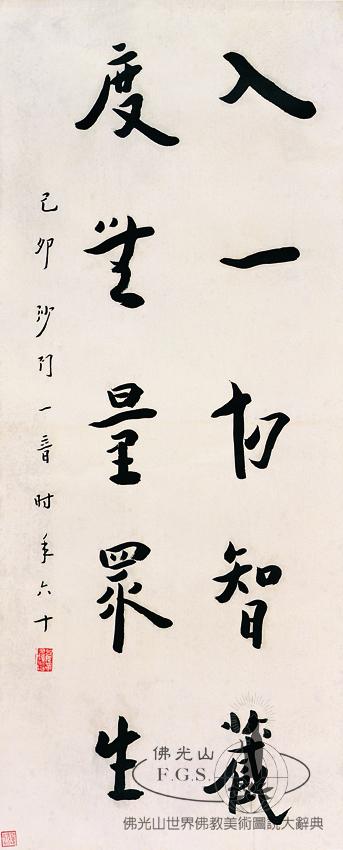 入一切智藏
度無量眾生
己卯沙門一音時年六十
佛光山
F.G.S.
佛光山世界佛教美術圖說大辭典